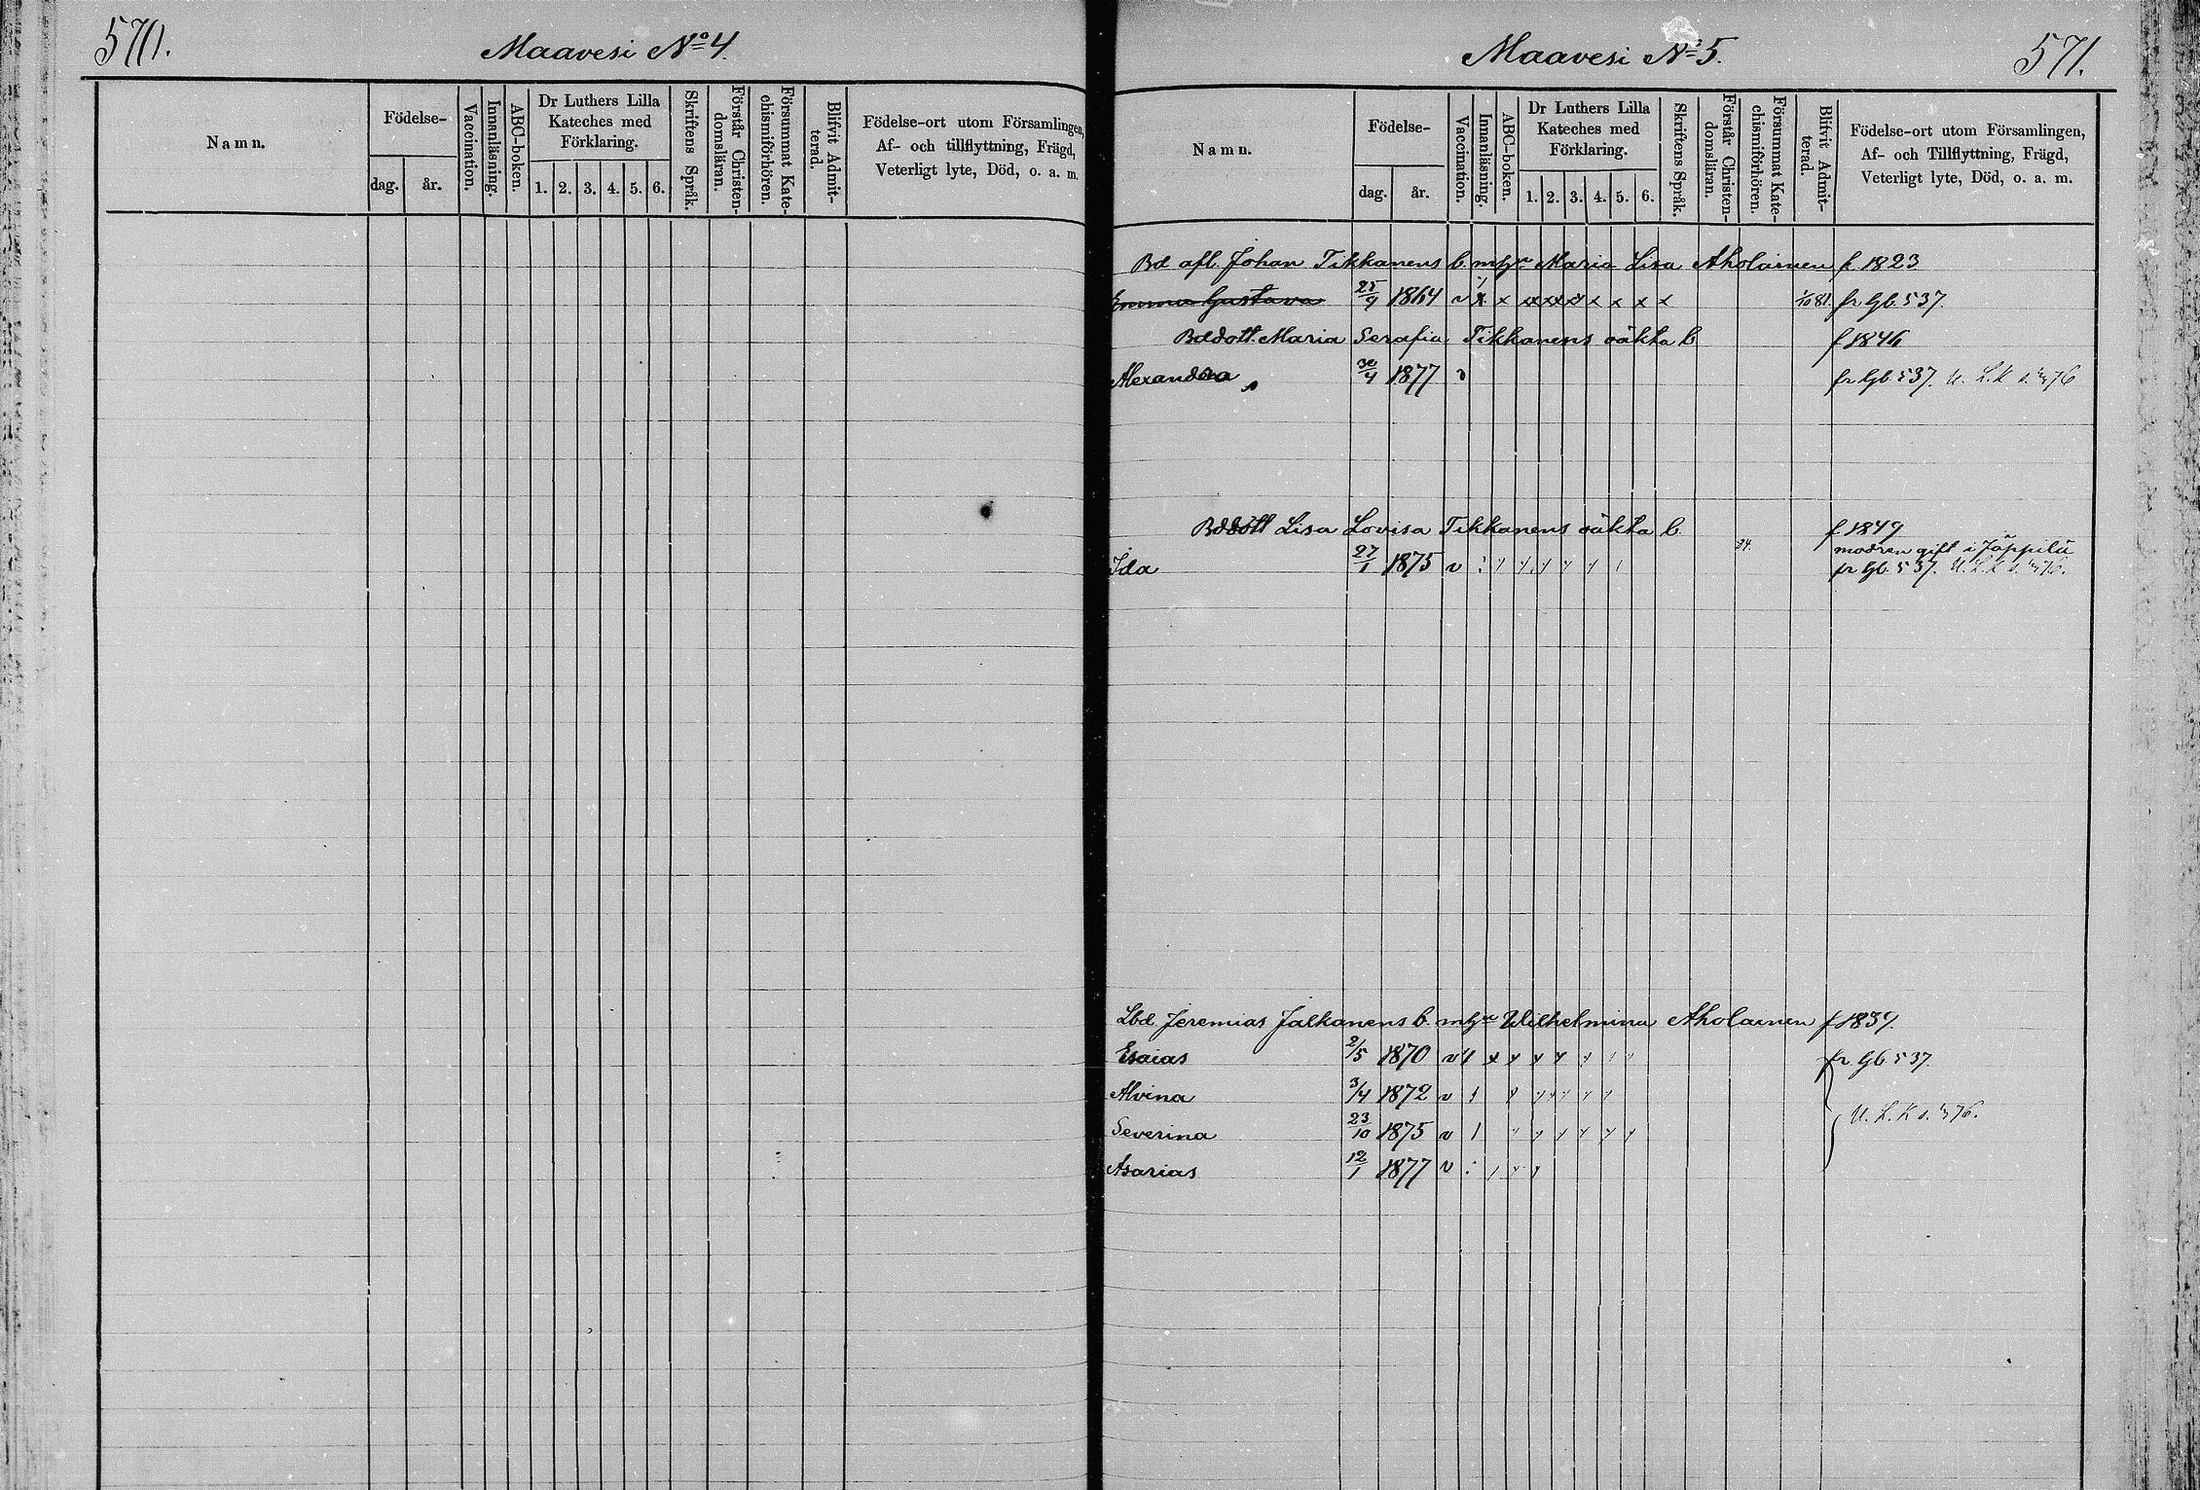 570.
Maavesi No 4.
Namn.
Födelse-
dag.
år.
Vaccination.
Innanläsning.
ABC-boken.
Dr Luthers Lilla
Kateches med
Förklaring.
1. 2. 3. 4. 5. 6.
Skriftens Språk.
Förstår Christen-
domsläran.
Försummat Kate-
chismiförhören.
Blifvit Admit-
terad.
Födelse-ort utom Församlingen,
Af- och tillflyttning, Frägd,
Veterligt lyte, Död, o. a. m.
Maavesi No 5.
571.
Namn.
Födelse-
dag.
år.
Vaccination.
Innanläsning.
ABC-boken.
Dr Luthers Lilla
Kateches med
Förklaring.
1. 2. 3. 4. 5. 6.
Skriftens Språk.
Förstår Christen-
domsläran.
Försummat Kate-
chismiförhören.
Blifvit Admit-
terad.
Födelse-ort utom Församlingen,
Af- och Tillflyttning, Frägd,
Veterligt lyte, Död, o. a. m.
Bd afl. Johan Tikkanens b. m hu Maria Lisa Aholainen f 1823
Emma Gustava 25/9 1864 v x x x x x x x x x 1/10 81. fr Gb. 537.
Bddott. Maria Serafia Tikkanens oäkta b f 1846
Alexandra 30/4 1877 v fr Gb. 537. U. L. K
Bddott Lisa Lovisa Tikkanens oäkta b. f 1849
84. modren gift i Jäppilä
Ida 27/1 1875 v fr Gb. 537. U. L. K
Lbd. Jeremias Jalkanens b. m hu Wilhelmina Aholainen f 1839.
Esaias 2/5 1870 v fr Gb 537.
Alvina 3/4 1872 v
Severina 23/10 1875 v U. L. K
Asarias 12/1 1877 v